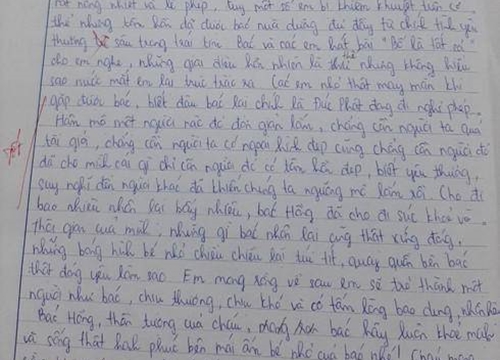 rất nóng nhiệt và lễ phép, tuy một số em bị khiếm khuyết trên cơ
thể nhưng tâm hồn đã được bác nuôi dưỡng đủ đầy từ chính tình yêu
thương sâu trong trái tim. Bác và các em hát bài "Bố là tất cả"
cho em nghe, những giai điệu hồn nhiên là thế nhưng không hiểu
sao nước mắt em lại trực trào ra. Các em nhỏ thật may mắn khi
gặp được bác, biết đâu bác lại chính là Đức Phật đang đi nghe pháp.
Hâm mộ một người nào đó đơn giản lắm, chẳng cần người ta quá
tài giỏi, chẳng cần người ta có ngoại hình đẹp cũng chẳng cần người đó
đã cho mình cái gì chỉ cần người đó có tâm hồn đẹp, biết yêu thương,
suy nghĩ đến người khác đã khiến chúng ta ngưỡng mộ lắm rồi. Cho đi
bao nhiêu nhận lại bấy nhiêu, bác Hồng đã cho đi sức khoẻ và
thời gian của mình, những gì bác nhận lại cũng thật xứng đáng,
những bóng hình bé nhỏ chiều chiều lại túi tít, quây quần bên bác
thật đáng yêu làm sao. Em mong rằng về sau em sẽ trở thành một
người như bác, chịu thương, chịu khó và có tấm lòng bao dung, nhân hậu
Bác Hồng, thần tượng của cháu, mong bác hãy luôn khoẻ mạnh
và sống thật hạnh phúc bên mái ấm bé nhỏ của bác nhé! Cháu mong